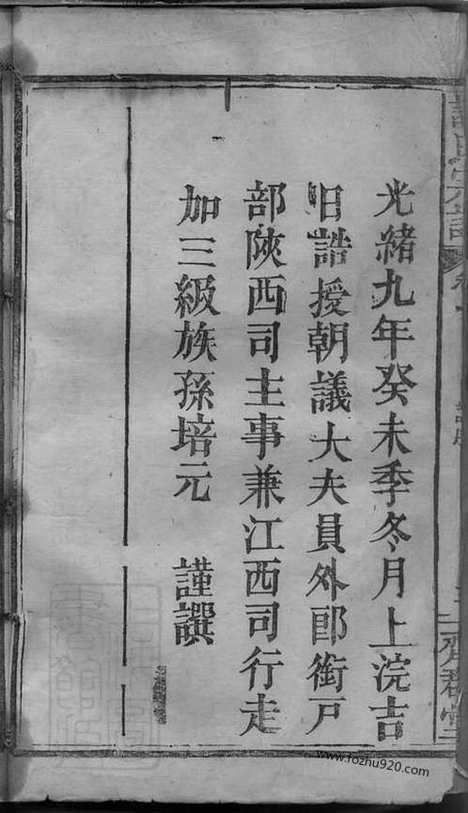 光緒九年癸未季冬月上浣吉
旦誥授朝議大夫員外郎銜戸
部陝西司主事兼江西司行走
加三級族孫培元　謹譔
www.fozhu920.com